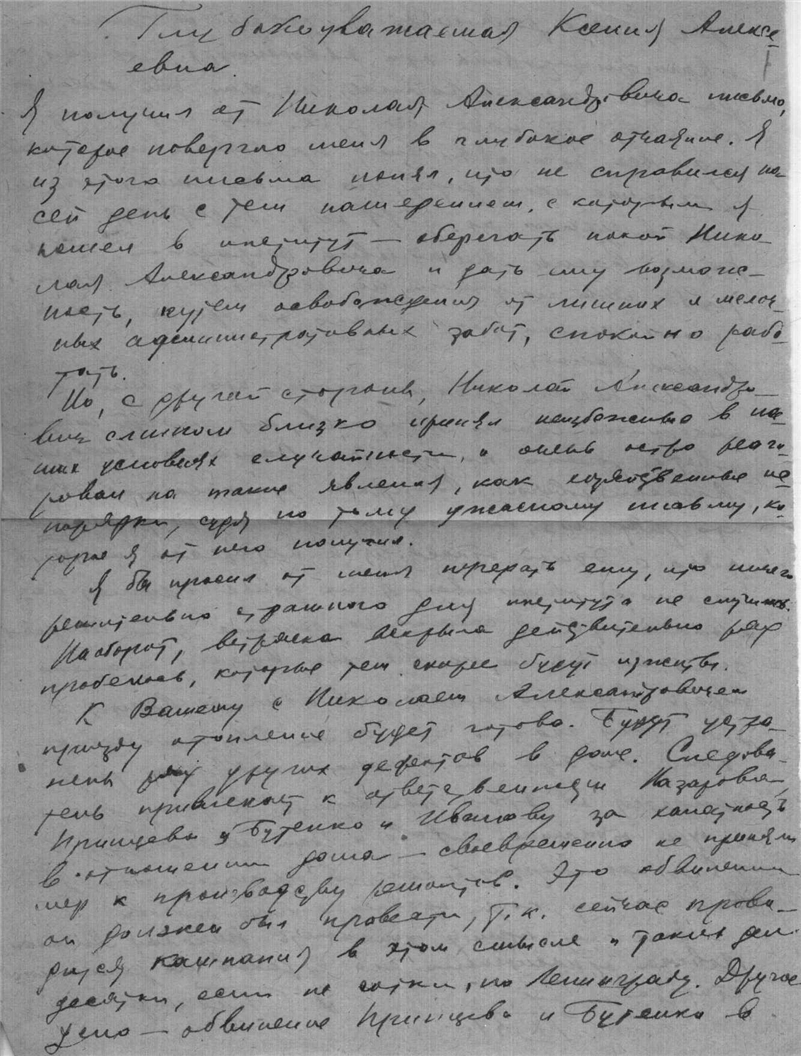 Глубокоуважаемая Ксения Алексе-
евна.
Я получил от Николая Александровича письмо,
которое повергло меня в глубокое отчаяние. Я
из этого письма понял, что не справился на
сей день с тем намерением, с которым я
пошел в институт — оберегать покой Нико-
лая Александровича и дать ему возмож-
ность, путем освобождения от лишних и мелоч-
ных административных забот, спокойно рабо-
тать.
Но, с другой стороны, Николай Александро-
вич слишком близко принял неизбежные в на-
ших условиях случайности, и очень остро реаги-
ровал на такие явления, как хозяйственные не-
порядки, судя по тому ужасному письму, ко-
торое я от него получил.
Я бы просил от меня передать ему, что ничего
решительно страшного для института не случилось.
Наоборот, встряска вскрыла действительно ряд
пробелов, которые тем скорее будут изжиты.
К Вашему с Николаем Александровичем
приезду отопление будет готово. Будут устра-
нены ряд других дефектов в доме. Следова-
тель привлекает к ответственности Назарова,
Принцева и Бутенко и Иванову за халатность
в отношении дома — своевременно не приняли
мер к производству ремонтов. Это обвинение
он должен был провести, т.к. сейчас прово-
дится кампания в этом смысле и таких дел
десятки, если не сотни, по Ленинграду. Другое
дело — обвинение Принцева и Бутенко в